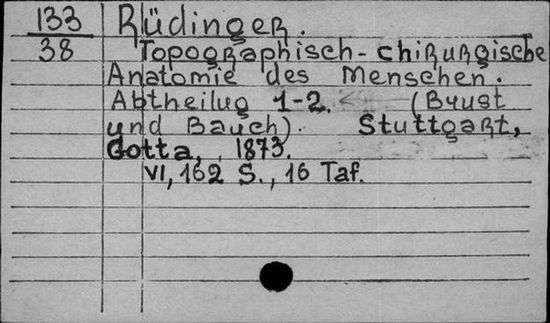 133 Rüdinger.
38 Topographisch-chirurgische
Anatomie des Menschen.
Abtheilug 1-2. (Bryust
und Bauch). Stuttgart,
Cotta, 1873.
VI, 162 S., 16 Taf.